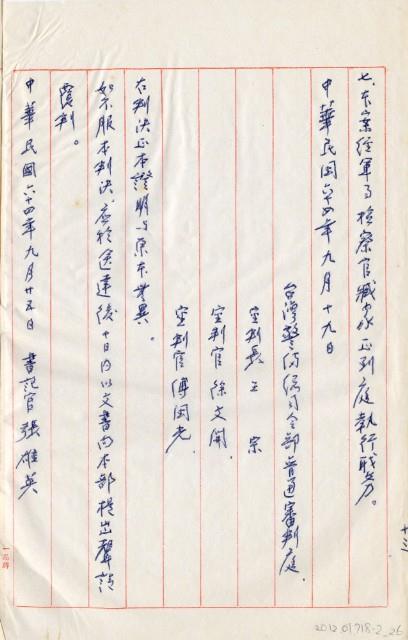 七、本案經軍事檢察官臧家正到庭執行職务。
中華民国六十四年九月十九日
台灣警備總司令部普通審判庭
審判長王 宗
審判官徐文開
審判官傅国光
右判決正本證明与原本無異。
如不服本判決，應於送達後十日內以文書向本部提出聲請
覆判。
中華民國六十四年九月廿五日 書記官張雄英
十三
一品牌
20120718-2_26